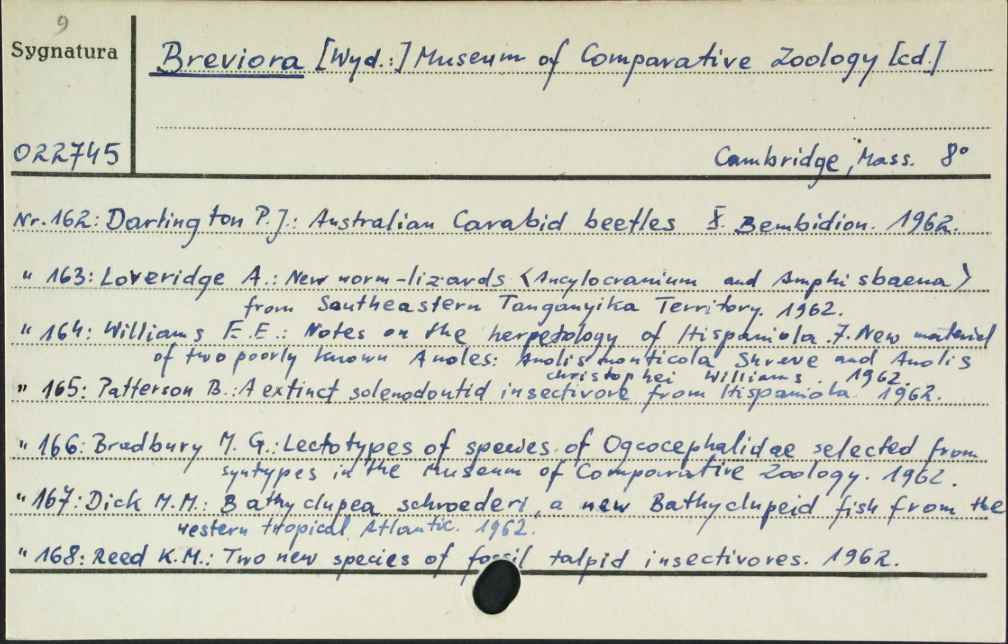 9
Sygnatura
Breviora [Wyd.:] Museum of Comparative Zoology [cd.]
022745
Cambridge, Mass. 8°
Nr. 162: Darlington P.J.: Australian Carabid beetles X. Bembidion. 1962.
" 163: Loveridge A.: New worm-lizards <Ancylocranium and Amphisbaena>
from Southeastern Tanganyika Territory. 1962.
" 164: Williams E.E.: Notes on the herpetology of Hispaniola. 7. New material
of two poorly known Anoles: Anolis monticola Shreve and Anolis
christophei Williams. 1962.
" 165: Patterson B.: A extinct solenodontid insectivore from Hispaniola. 1962.
" 166: Bradbury M. G.: Lectotypes of species of Ogcocephalidae selected from
syntypes in the Museum of Comparative Zoology. 1962.
" 167: Dick M.M.: Bathyclupea schroederi, a new Bathyclupeid fish from the
western tropical Atlantic. 1962.
" 168: Reed K.M.: Two new species of fossil talpid insectivores. 1962.